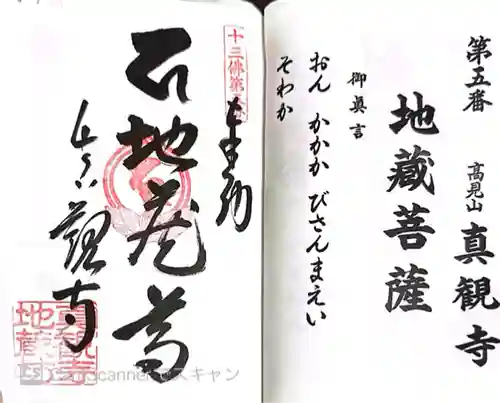 第五番
高見山 真観寺
地蔵菩薩
御真言
おん かかか びさんまえい
そわか
十三佛第五番
奉納
地蔵尊
真観寺
真観寺
地蔵
CS CamScanner でスキャン